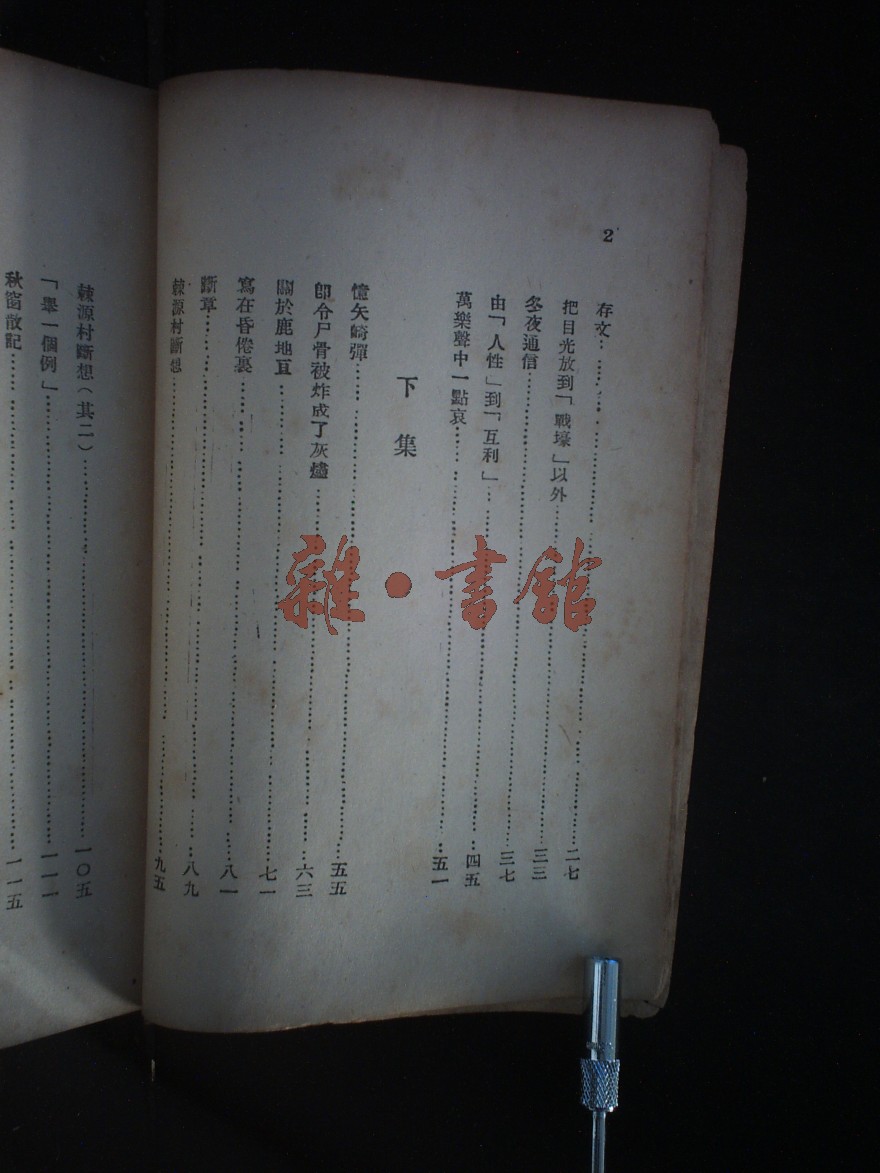 2
存文……二七
把目光放到「戰壕」以外……三三
冬夜通信……三七
由「人性」到「互利」……四五
萬樂聲中一點哀……五一
下集
憶矢崎彈……五五
卽令尸骨被炸成了灰燼……六三
關於鹿地亘……七一
寫在昏倦裏……八一
斷章……八九
棘源村斷想……九五
棘源村斷想（其二）……一〇五
「舉一個例」……一一一
秋窗散記……一一五
雜·書館